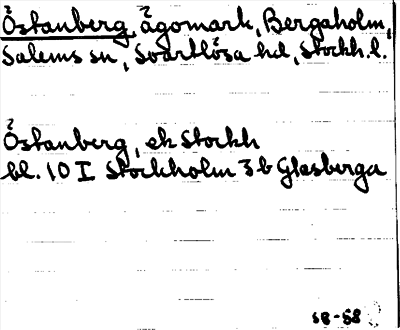 Östanberg, ägomark, Bergaholm,
Salems sn, Svartlösa hd, Stockh. l.
Östanberg, ek Stockh
bl. 10 I Stockholm 3 b Glasberga